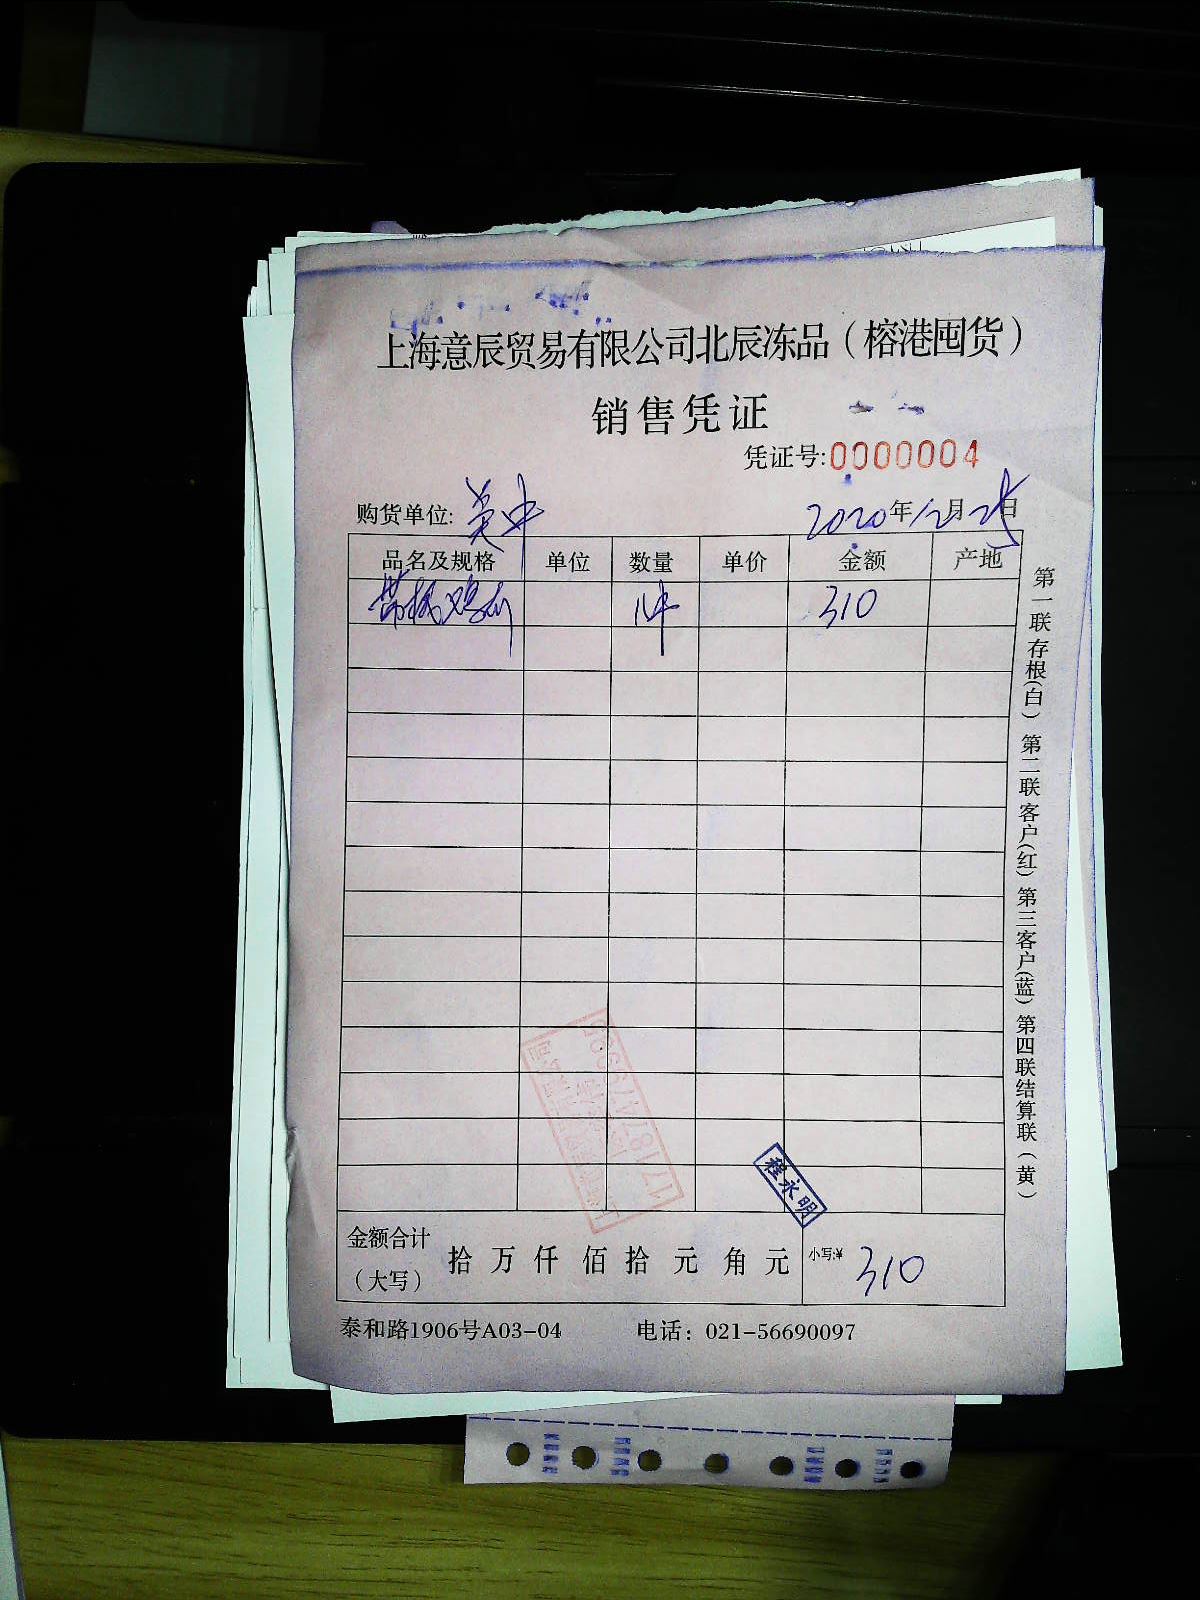 上海意辰贸易有限公司北辰冻品（榕港囤货）
销售凭证
凭证号:0000004
购货单位: 2020年12月25日
品名及规格 单位 数量 单价 金额 产地
1件 310
金额合计（大写） 拾 万 仟 佰 拾 元 角 元 小写:¥ 310
泰和路1906号A03-04 电话：021-56690097
第一联存根(白) 第二联客户(红) 第三客户(蓝) 第四联结算联（黄）
程永明